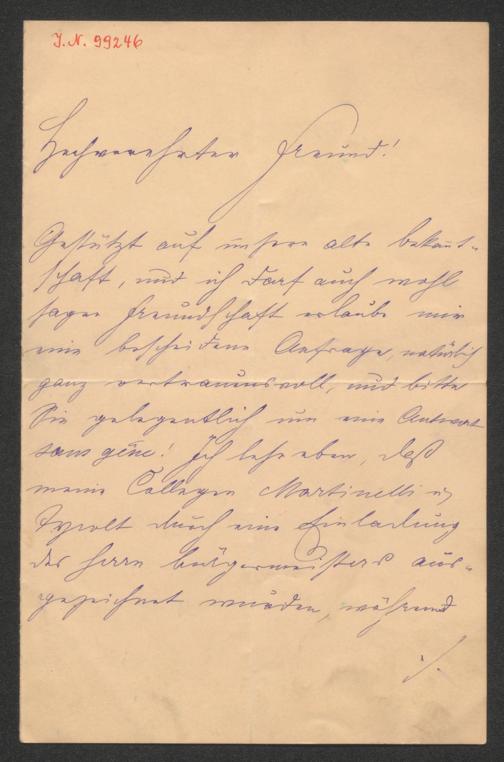 J. N. 99246
Hochverehrter Freund!
Gestützt auf unsere alte bekannt-
schaft, und ich darf auch wohl
sagen Freundschaft erlaube mir
eine bescheidene Anfrage, natürlich
ganz vertrauensvoll, und bitte
Sie gelegentlich um eine Antwort
sans gêne! Ich lese eben, daß
meine Collegen Martinelli u
Tyrolt durch eine Einladung
des Herrn bürgermeisters aus-
gezeichnet wurden, während
./.